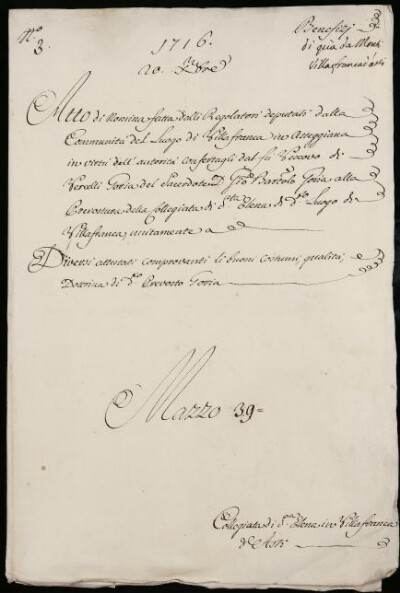 N.º
3.
1716.
20. 9bre
Benefizj
di quà da Monti
Villafranca d'Asti
Atto di Nomina fatta dalli Regolatori deputati dalla
Communità del Luogo di Villafranca in Asteggiana
in virtù dell' autorità conferitagli dal fù Vescovo di
Vercelli Goria del Sacerdote D. Gio. Bartolo Goria alla
Prevostura della Collegiata di S.ta Elena di d.º Luogo di
Villafranca, unitamente a
Diversi attestati comprovanti li buoni costumi, qualità, e
Dottrina di d.º Prevosto Goria
Mazzo 39=
Collegiata di S.ta Elena in Villafranca
d'Asti